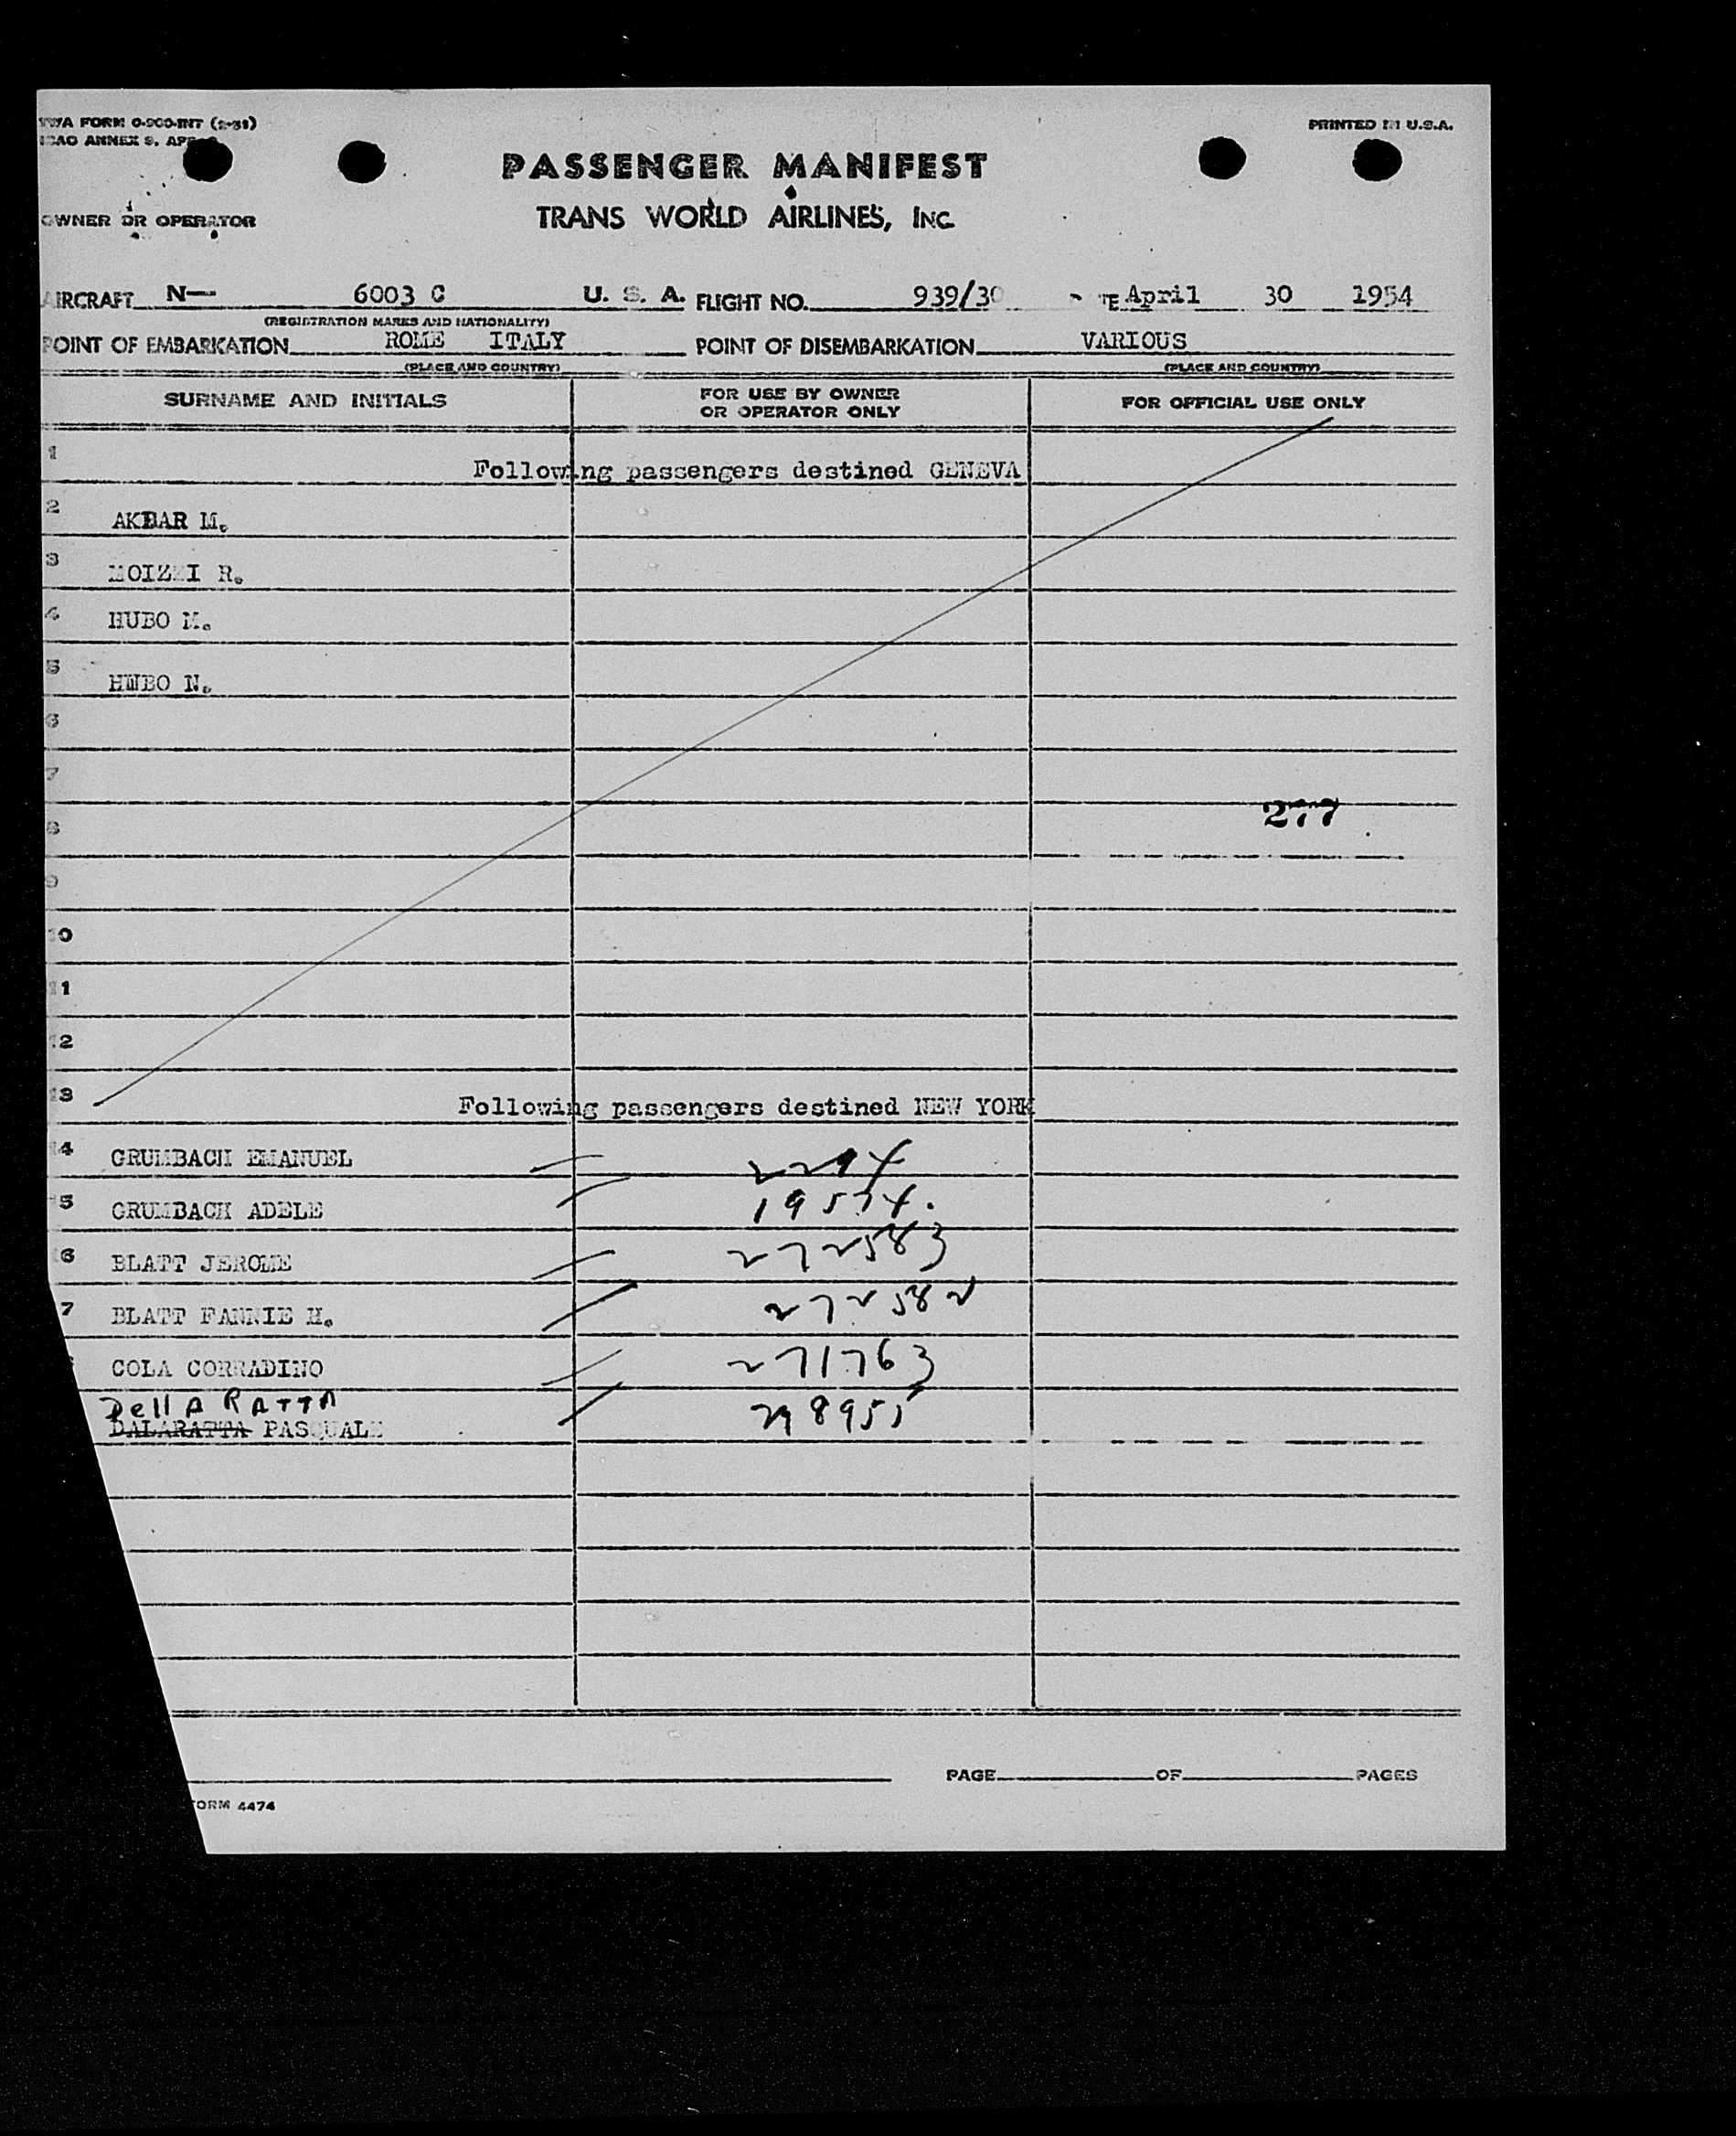 TWA FORM O-900-INT (2-51)
ICAO ANNEX 9, APP
PRINTED IN U.S.A.
PASSENGER MANIFEST
OWNER OR OPERATOR
TRANS WORLD AIRLINES, INC.
AIRCRAFT N— 6003 C U. S. A. FLIGHT NO. 939/30 April 30 1954
(REGISTRATION MARKS AND NATIONALITY)
POINT OF EMBARKATION ROME ITALY POINT OF DISEMBARKATION VARIOUS
(PLACE AND COUNTRY) (PLACE AND COUNTRY)
SURNAME AND INITIALS FOR USE BY OWNER OR OPERATOR ONLY FOR OFFICIAL USE ONLY
1 Following passengers destined GENEVA
2 AKBAR M.
3 R.
4 HUBO M.
5 N.
6
7
277
8
9
10
11
12
13 Following passengers destined NEW YORK
14 GRUMBACH EMANUEL
15 GRUMBACH ADELE 19574.
16 BLATT JEROME 272583
17 BLATT FANNIE H. 272582
COLA CORRADINO 271763
DellA RATTA
DALARATTA PASQUALE
PAGE OF PAGES
FORM 4474